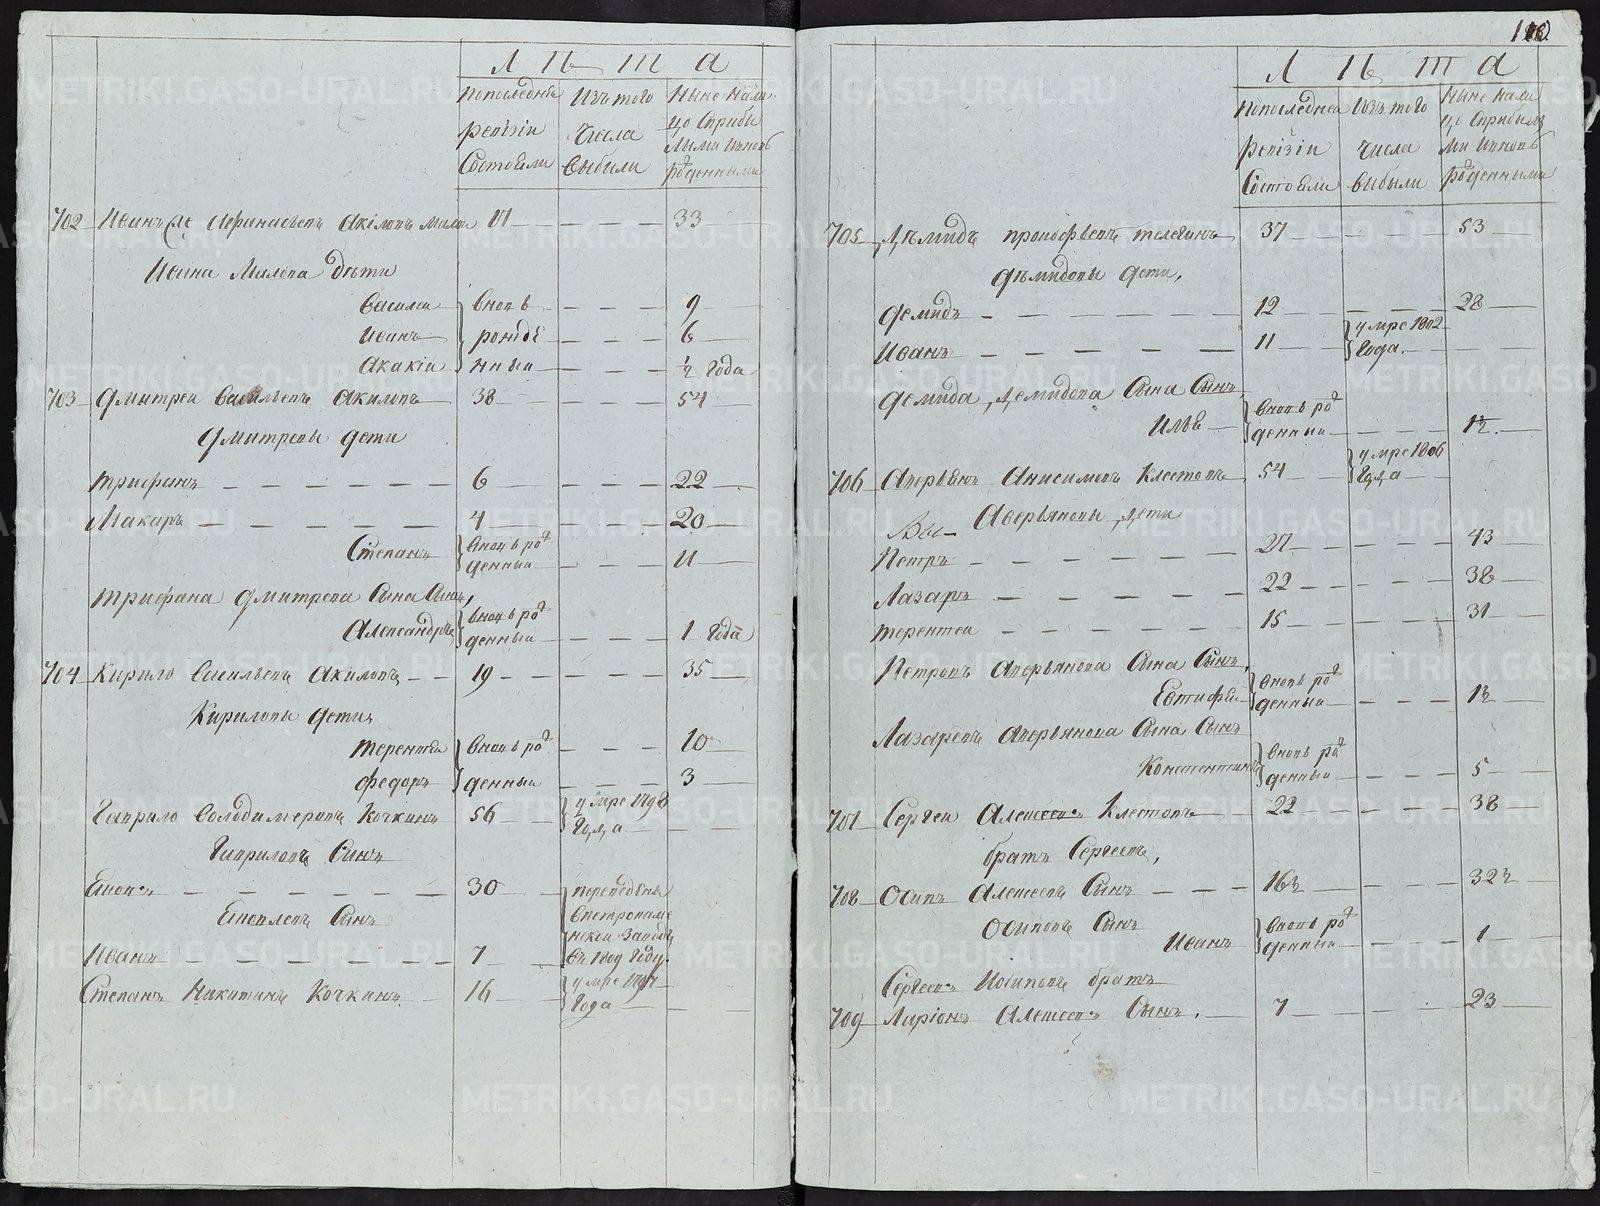 Л Ѣ Т А
Попоследнеи ревизіи состояли
Изъ того числа выбыли
Ныне налицо сприбылыми ивновь рожденными
702 Иванъ Афанасьевъ Акиловъ 17 33
Ивана Милова дѣти
Василеи вновь 9
Иванъ рожде 6
Акакіи нныи ½ года
703 Дмитреи Васильевъ Акиловъ 38 54
Дмитревы дети
Трифанъ 6 22
Макаръ 4 20
Степанъ вновь рожденныи 11
Трифана Дмитрева сына сынъ,
Александръ вновь рожденныи 1 года
704 Кирило Васильевъ Акиловъ 19 35
Кириловы дети
Терентеи вновь рож 10
Федоръ денныи 3
Гаврило Володимеровъ Кочкинъ 56 умре 1798 года
Гавриловъ сынъ
30 переведены
сынъ
Иванъ 7 въ 1809 году.
Степанъ Никитинъ Кочкинъ 16 умре 1797 года
Л Ѣ Т А
Попоследнеи ревизіи состояли
Изъ того числа выбыли
Ныне налицо сприбылыми ивновь рожденными
705 Дѣмидъ Прокофьевъ Телегинъ 37 53
Дѣмидовы дети,
Демидъ 12 28
Иванъ 11 умре 1802 года.
Демида Демидова сына сынъ
Илья вновь рожденныи 1½
706 Аверьянъ Анисимовъ Клестовъ 54 умре 1806 года
Аверьяновы дети
Петръ 27 43
Лазарь 22 38
Терентеи 15 31
Петровъ Аверьянова сына сынъ,
Евтифеи вновь рожденныи 1½
Лазаревъ Аверьянова сына сынъ
Констентинъ вновь рожденныи 5
707 Сергеи Алексеевъ Клестовъ 22 38
братъ Сергеевъ,
708 Осипъ Алексеевъ сынъ 16½ 32½
Осиповъ сынъ
Иванъ вновь рожденныи 1
Сергеевъ Иосиповъ братъ
709 Ларіонъ Алексеевъ сынъ. 7 23
METRIKI.GASO-URAL.RU